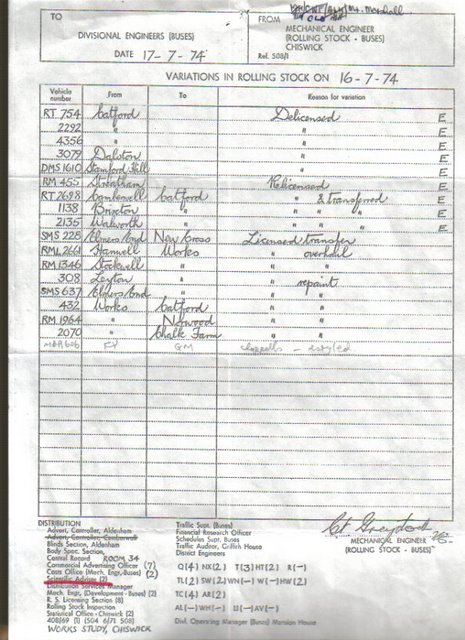 TO
DIVISIONAL ENGINEERS (BUSES)
DATE 17-7-74
FROM Mr. Marshall
MECHANICAL ENGINEER
(ROLLING STOCK - BUSES)
CHISWICK
Ref. 508/1
VARIATIONS IN ROLLING STOCK ON 16-7-74
Vehicle number From To Reason for variation
RT 754 Catford Delicensed E
2292 " " E
4356 " " E
3079 Dalston " E
DMS 1610 Stamford Hill " E
RM 455 Streatham Relicensed E
RT 2698 Camberwell Catford " & Transferred E
1138 Brixton " " " E
2135 Walworth " " " E
SMS 228 Elmers End New Cross Licensed transfer
RML 2661 Hanwell Works " overhaul
RM 1346 Stockwell " " "
308 Leyton " " repaint
SMS 637 Elmers End " " "
432 Works Catford " "
RM 1964 " Norwood " "
2070 " Chalk Farm " "
MECHANICAL ENGINEER
(ROLLING STOCK - BUSES)
DISTRIBUTION
Advert, Controller, Aldenham
Advert, Controller, Camberwell
Blinds Section, Aldenham
Body Spec. Section,
Central Record ROOM 34
Commercial Advertising Officer (7)
Costs Office (Mech. Engr, Buses) (2)
Scientific Adviser (2)
Distribution Services Manager
Mech. Engr, (Development - Buses) (2)
R. S. Licensing Section (8)
Rolling Stock Inspection
Statistical Office - Chiswick (2)
408/69 (1) (504 6/71 508)
WORKS STUDY, CHISWICK
Traffic Supt. (Buses)
Financial Research Officer
Schedules Supt. Buses
Traffic Auditor, Griffith House
District Engineers
Q(4) NX(2) T(3) HT(2) R(-)
TL(2) SW(2) WN(-) W(-) HW(2)
TC(4) AR(2)
AL(-) WH(-) U(-) AV(-)
Divl. Operating Manager (Buses) Mansion House